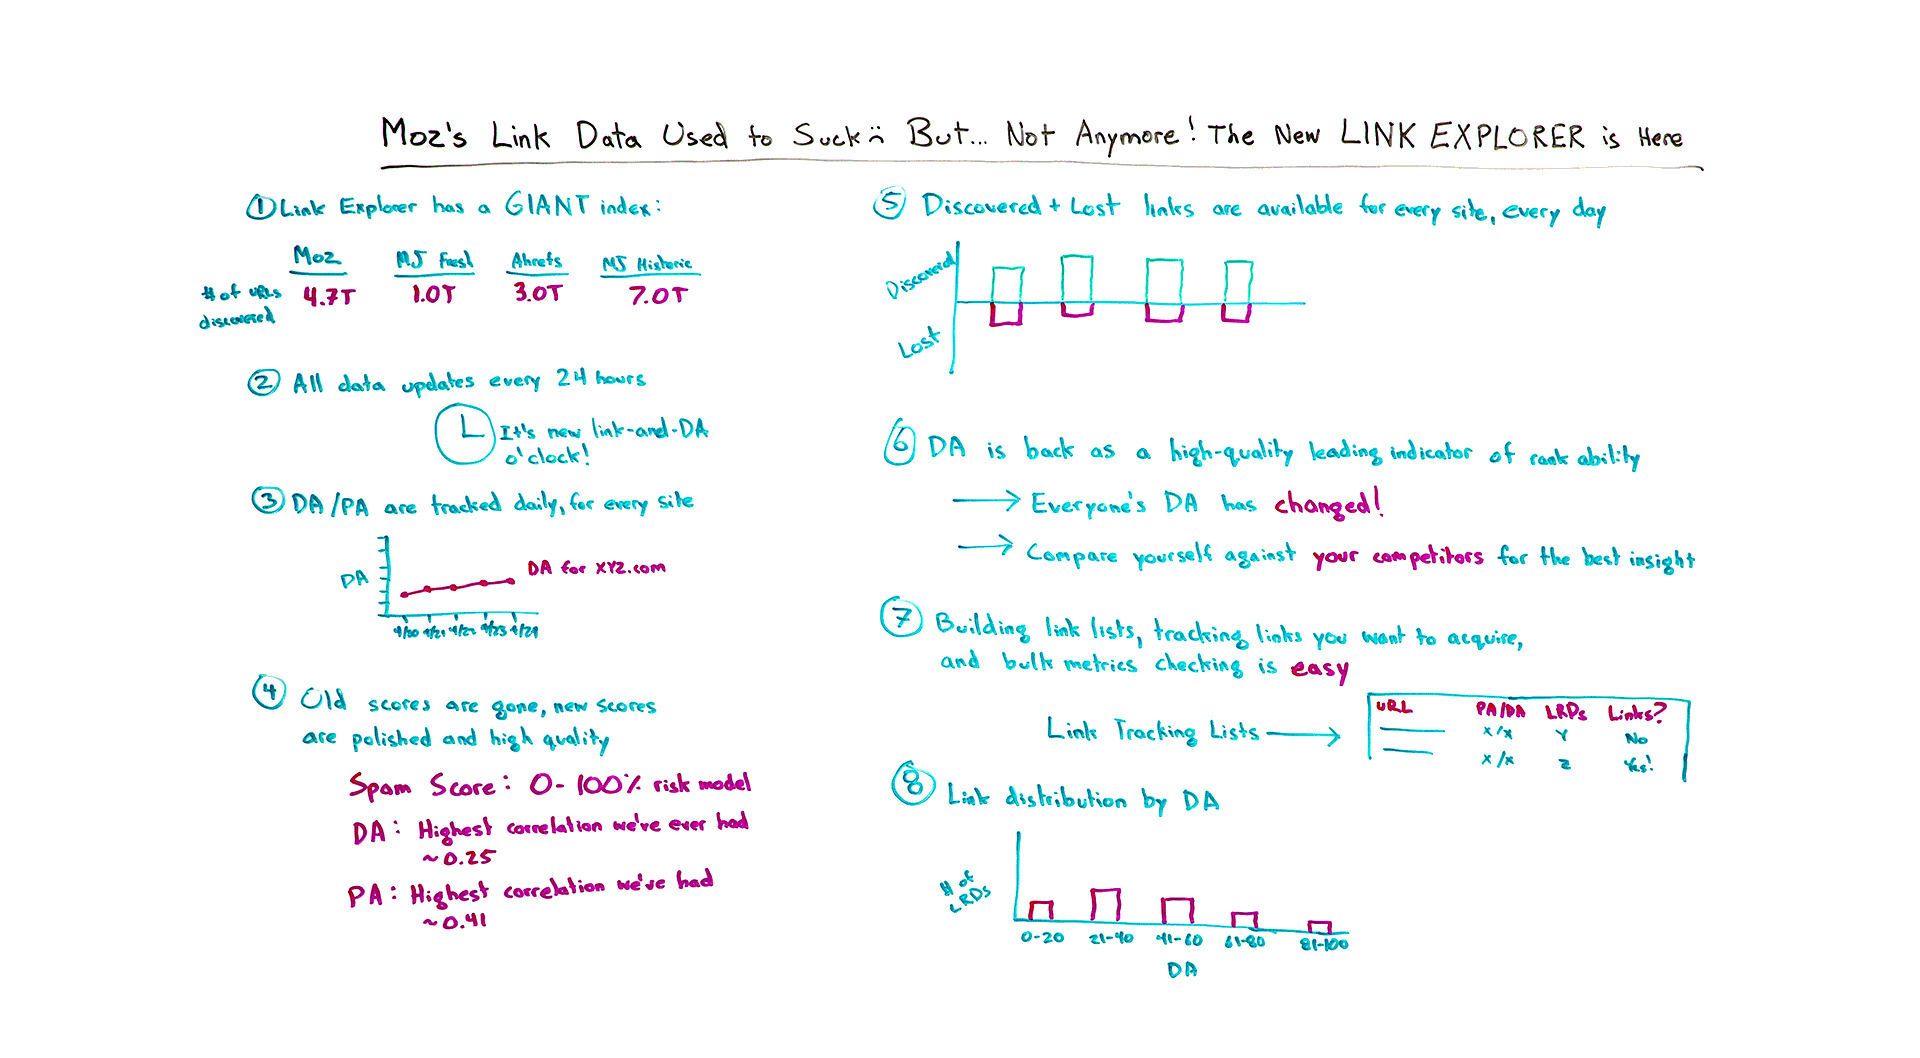 Moz's Link Data Used to Suck :( But... Not Anymore! The New LINK EXPLORER is Here
① Link Explorer has a GIANT index:
Moz MJ Fresh Ahrefs MJ Historic
# of URLs discovered 4.7T 1.0T 3.0T 7.0T
② All data updates every 24 hours
It's new link-and-DA
o'clock!
③ DA/PA are tracked daily, for every site
DA
DA for XYZ.com
4/20 4/21 4/22 4/23 4/24
④ Old scores are gone, new scores
are polished and high quality
Spam Score: 0-100% risk model
DA: Highest correlation we've ever had
~0.25
PA: Highest correlation we've had
~0.41
⑤ Discovered + Lost links are available for every site, every day
Discovered
Lost
⑥ DA is back as a high-quality leading indicator of rank ability
→ Everyone's DA has changed!
→ Compare yourself against your competitors for the best insight
⑦ Building link lists, tracking links you want to acquire,
and bulk metrics checking is easy
Link Tracking Lists →
URL PA/DA LRDs Links?
x/x Y No
x/x Z Yes!
⑧ Link distribution by DA
# of
LRDs
0-20 21-40 41-60 61-80 81-100
DA